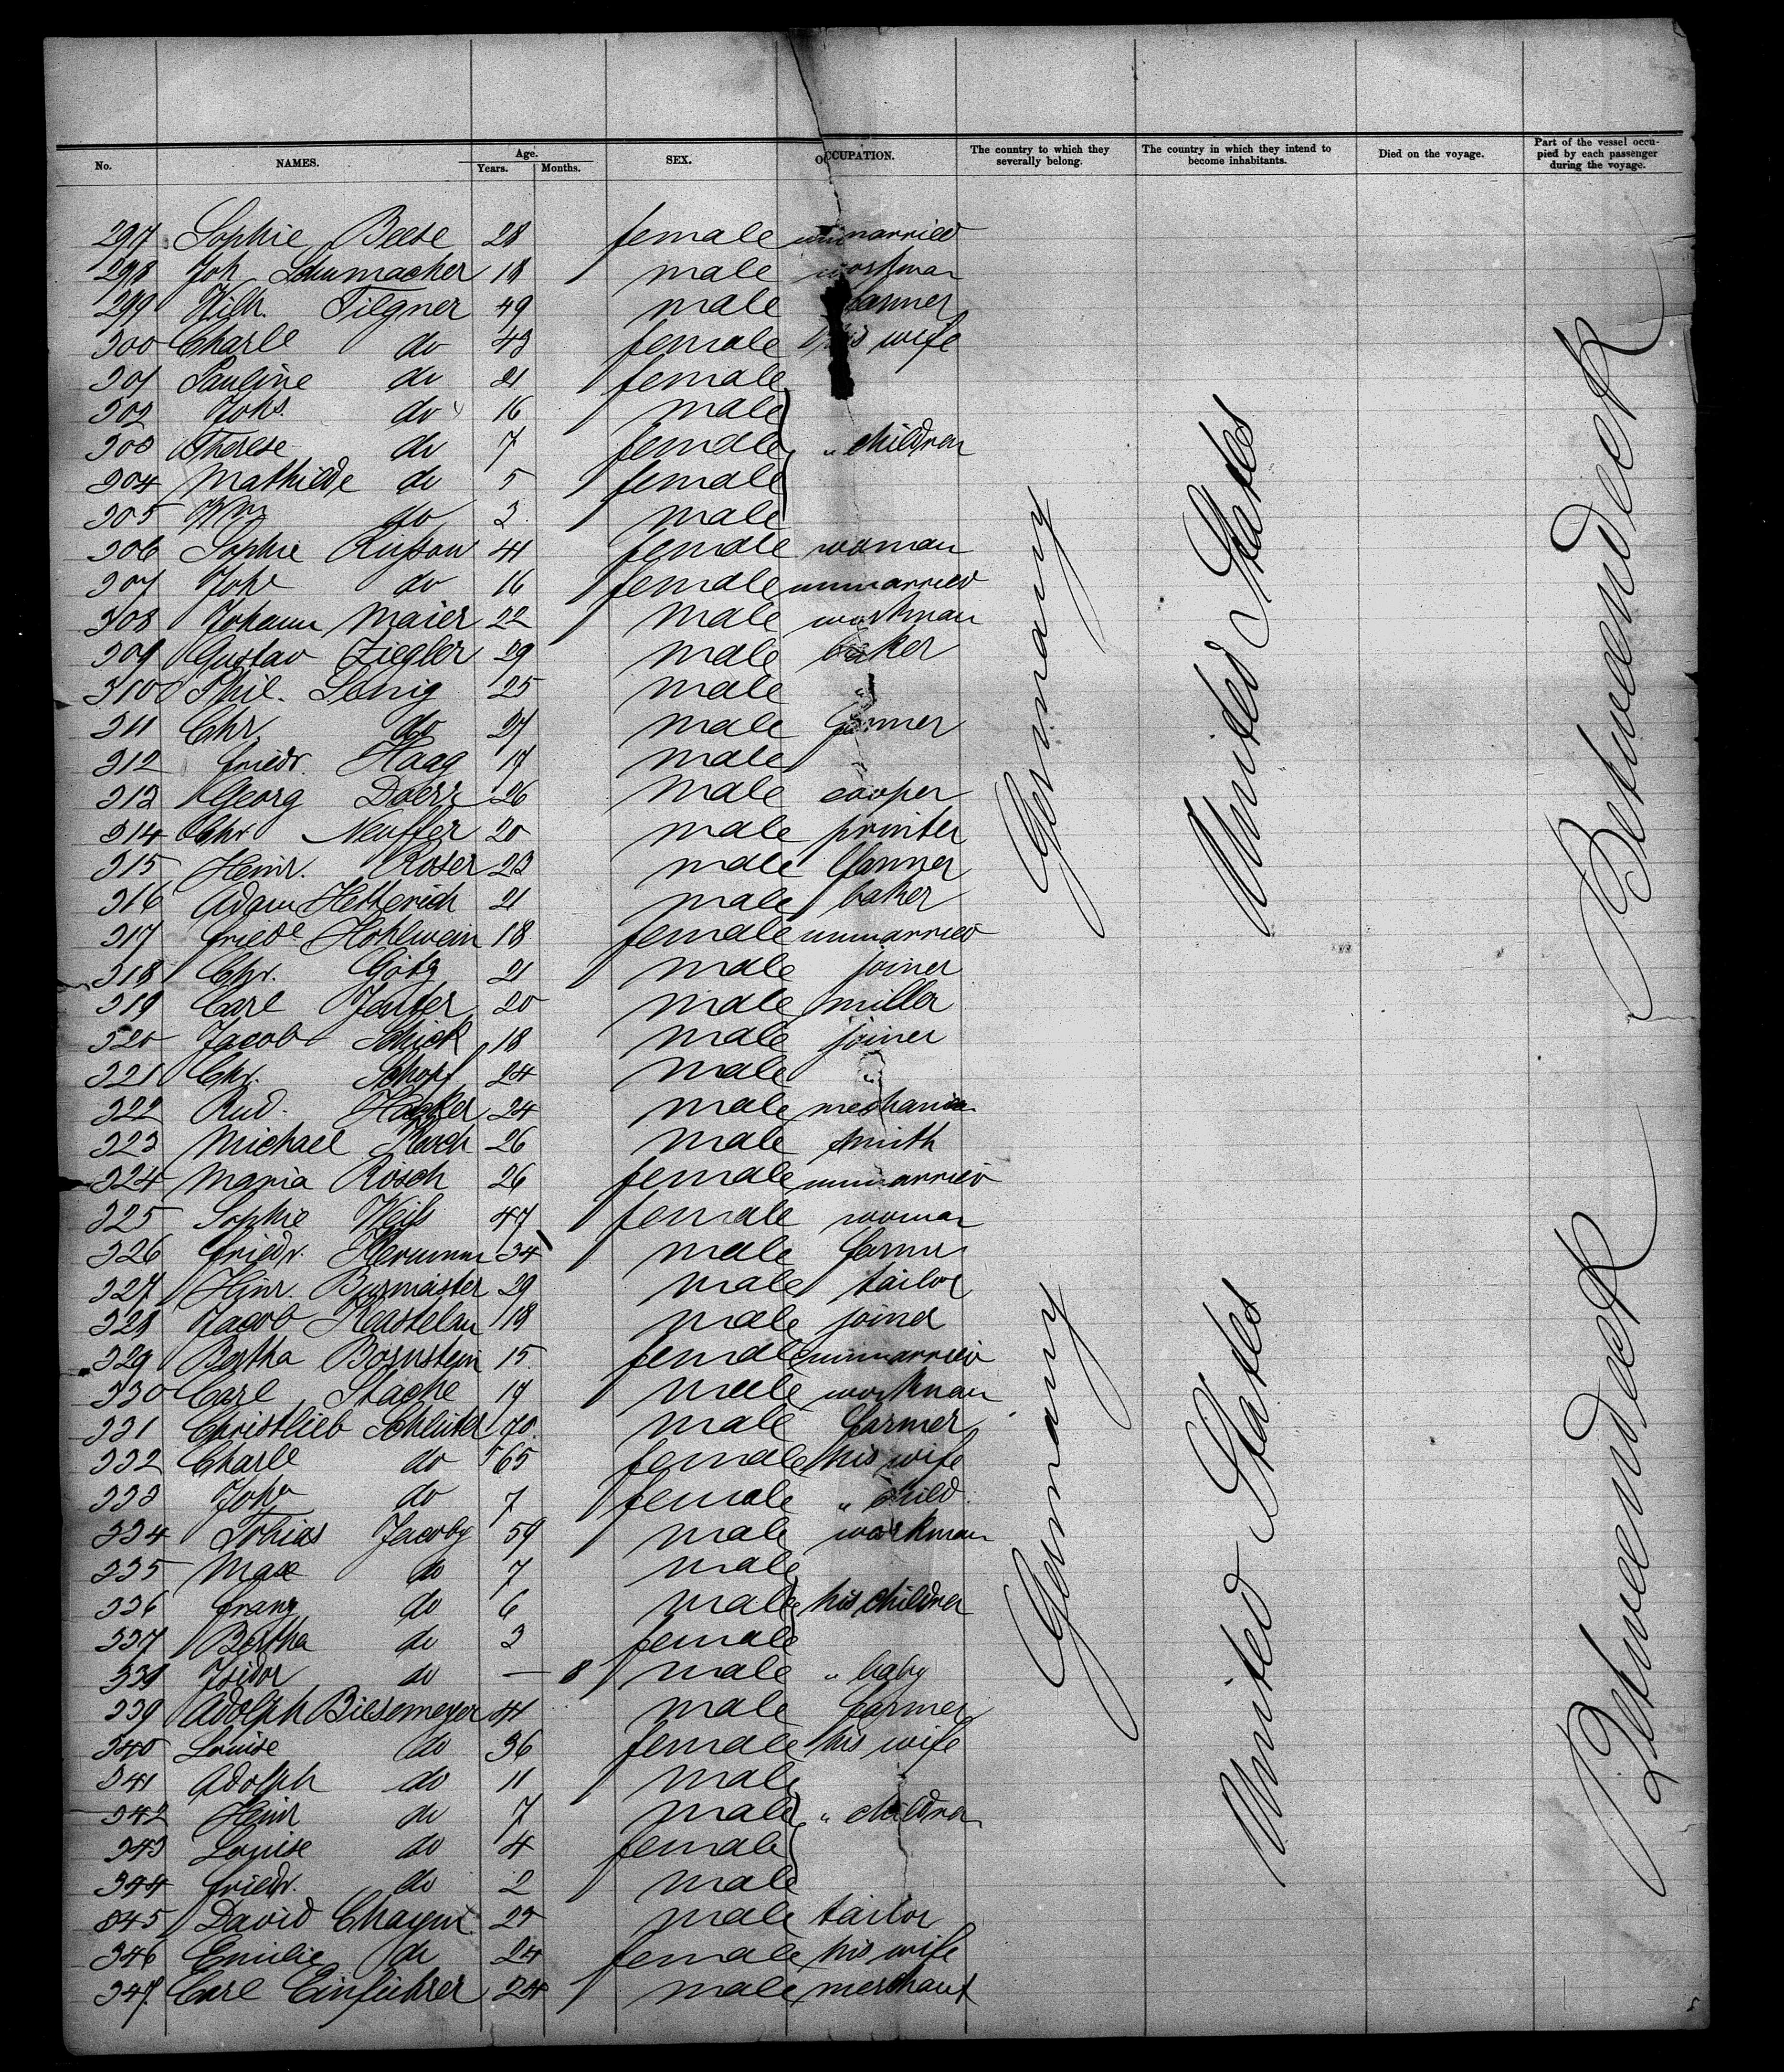 No. NAMES. Age. Years. Months. SEX. OCCUPATION. The country to which they severally belong. The country in which they intend to become inhabitants. Died on the voyage. Part of the vessel occupied by each passenger during the voyage.
297 Sophie Beese 28 female unmarried
298 Joh. Schumacher 18 male workman
299 Wilh. Tilgner 49 male farmer
300 Charle do 43 female his wife
301 Pauline do 21 female
302 Johs. do 16 male
303 Therese do 7 female " children
304 Mathilde do 5 female
305 Wm do 3 male
306 Sophie 41 female woman
307 Johe do 16 female unmarried
308 Johann Maier 22 male workman
309 Gustav Ziegler 29 male baker
310 Phil. 25 male "
311 Chr. do 27 male farmer
312 Friedr. Haag 17 male
313 Georg Doerr 26 male cooper
314 Chr Neuffer 20 male printer
315 Heinr. Roser 23 male farmer
316 Adam Hetterich 21 male baker
317 Friede Hohlwein 18 female unmarried
318 Chr. Götz 21 male joiner
319 Carl 20 male miller
320 Jacob Schick 18 male joiner
321 Chr. Schopf 24 male
322 Rud. 24 male mechanic
323 Michael 26 male smith
324 Maria Rösch 26 female unmarried
325 Sophie Weiß 47 female woman
326 Friedr. 34 male farmer
327 Hinr. Burmaster 29 male tailor
328 Jacob 18 male joiner
329 Bertha Bornstein 15 female unmarried
330 Carl Stache 17 male workman
331 Christlieb Schluter 70 male farmer
332 Charle do 65 female his wife
333 Joha do 7 female " child
334 Tobias Jacoby 59 male workman
335 Max do 7 male
336 Franz do 6 male his children
337 Bertha do 3 female
338 Isidor do — 8 male " baby
339 Adolph Biesemeyer 41 male farmer
340 Louise do 36 female his wife
341 Adolph do 11 male
342 Heinr do 7 male " children
343 Louise do 4 female
344 Friedr. do 2 male
345 David 25 male tailor
346 Emilie do 24 female his wife
347. Carl Einführer 24 male merchant
Germany United States Betweendeck
Germany United States Betweendeck